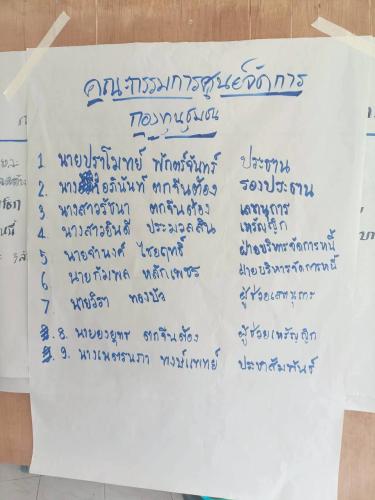 คณะกรรมการศูนย์จัดการ
กองทุนชุมชน
1. นายปราโมทย์ พักตร์จันทร์ ประธาน
2. นางอภินันท์ ตกจีนต้อง รองประธาน
3 นางสาวรัชนา ตกจีนต้อง เลขานุการ
4 นางสาวยินดี ประมวลสิน เหรัญญิก
5 นายจำนงค์ ไชยฤทธิ์ ฝ่ายบริหารจัดการหนี้
6 นายกัมพล หลักเพชร ฝ่ายบริหารจัดการหนี้
7 นายวิรา ทองบัว ผู้ช่วยเลขานุการ
8. นายยงยุทธ ตกจีนต้อง ผู้ช่วยเหรัญญิก
9. นางเพชรนภา พงษ์แพทย์ ประชาสัมพันธ์